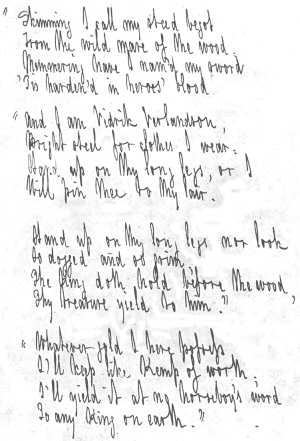 "Skimming I call my steed begot
From the wild mare of the wood.
Mimmering have I nam'd my sword
'Tis harden'd in heroes' blood.
"And I am Vidrik Verlandson,
Bright steel for clothes I wear:
Stand up on thy long legs, or I
Will pin thee to thy lair.
Stand up on thy long legs nor look
So dogged and so grim;
The King doth hold before the wood,
Thy treasure yield to him."
"Whatever gold I here possess
I'll keep like Kemp of worth,
I'll yield it at no horseboy's word
To any King on earth."